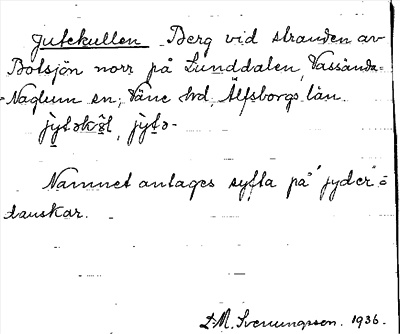 Jutekullen Berg vid stranden av
Botsjön norr på Lunddalen, Vassända-
-Naglum sn; Väne hd, Älfsborgs län.
jỳtəkul, jỳtə-
Namnet antages syfta på "jyder" =
danskar.
D. M. Svenungsson. 1936.